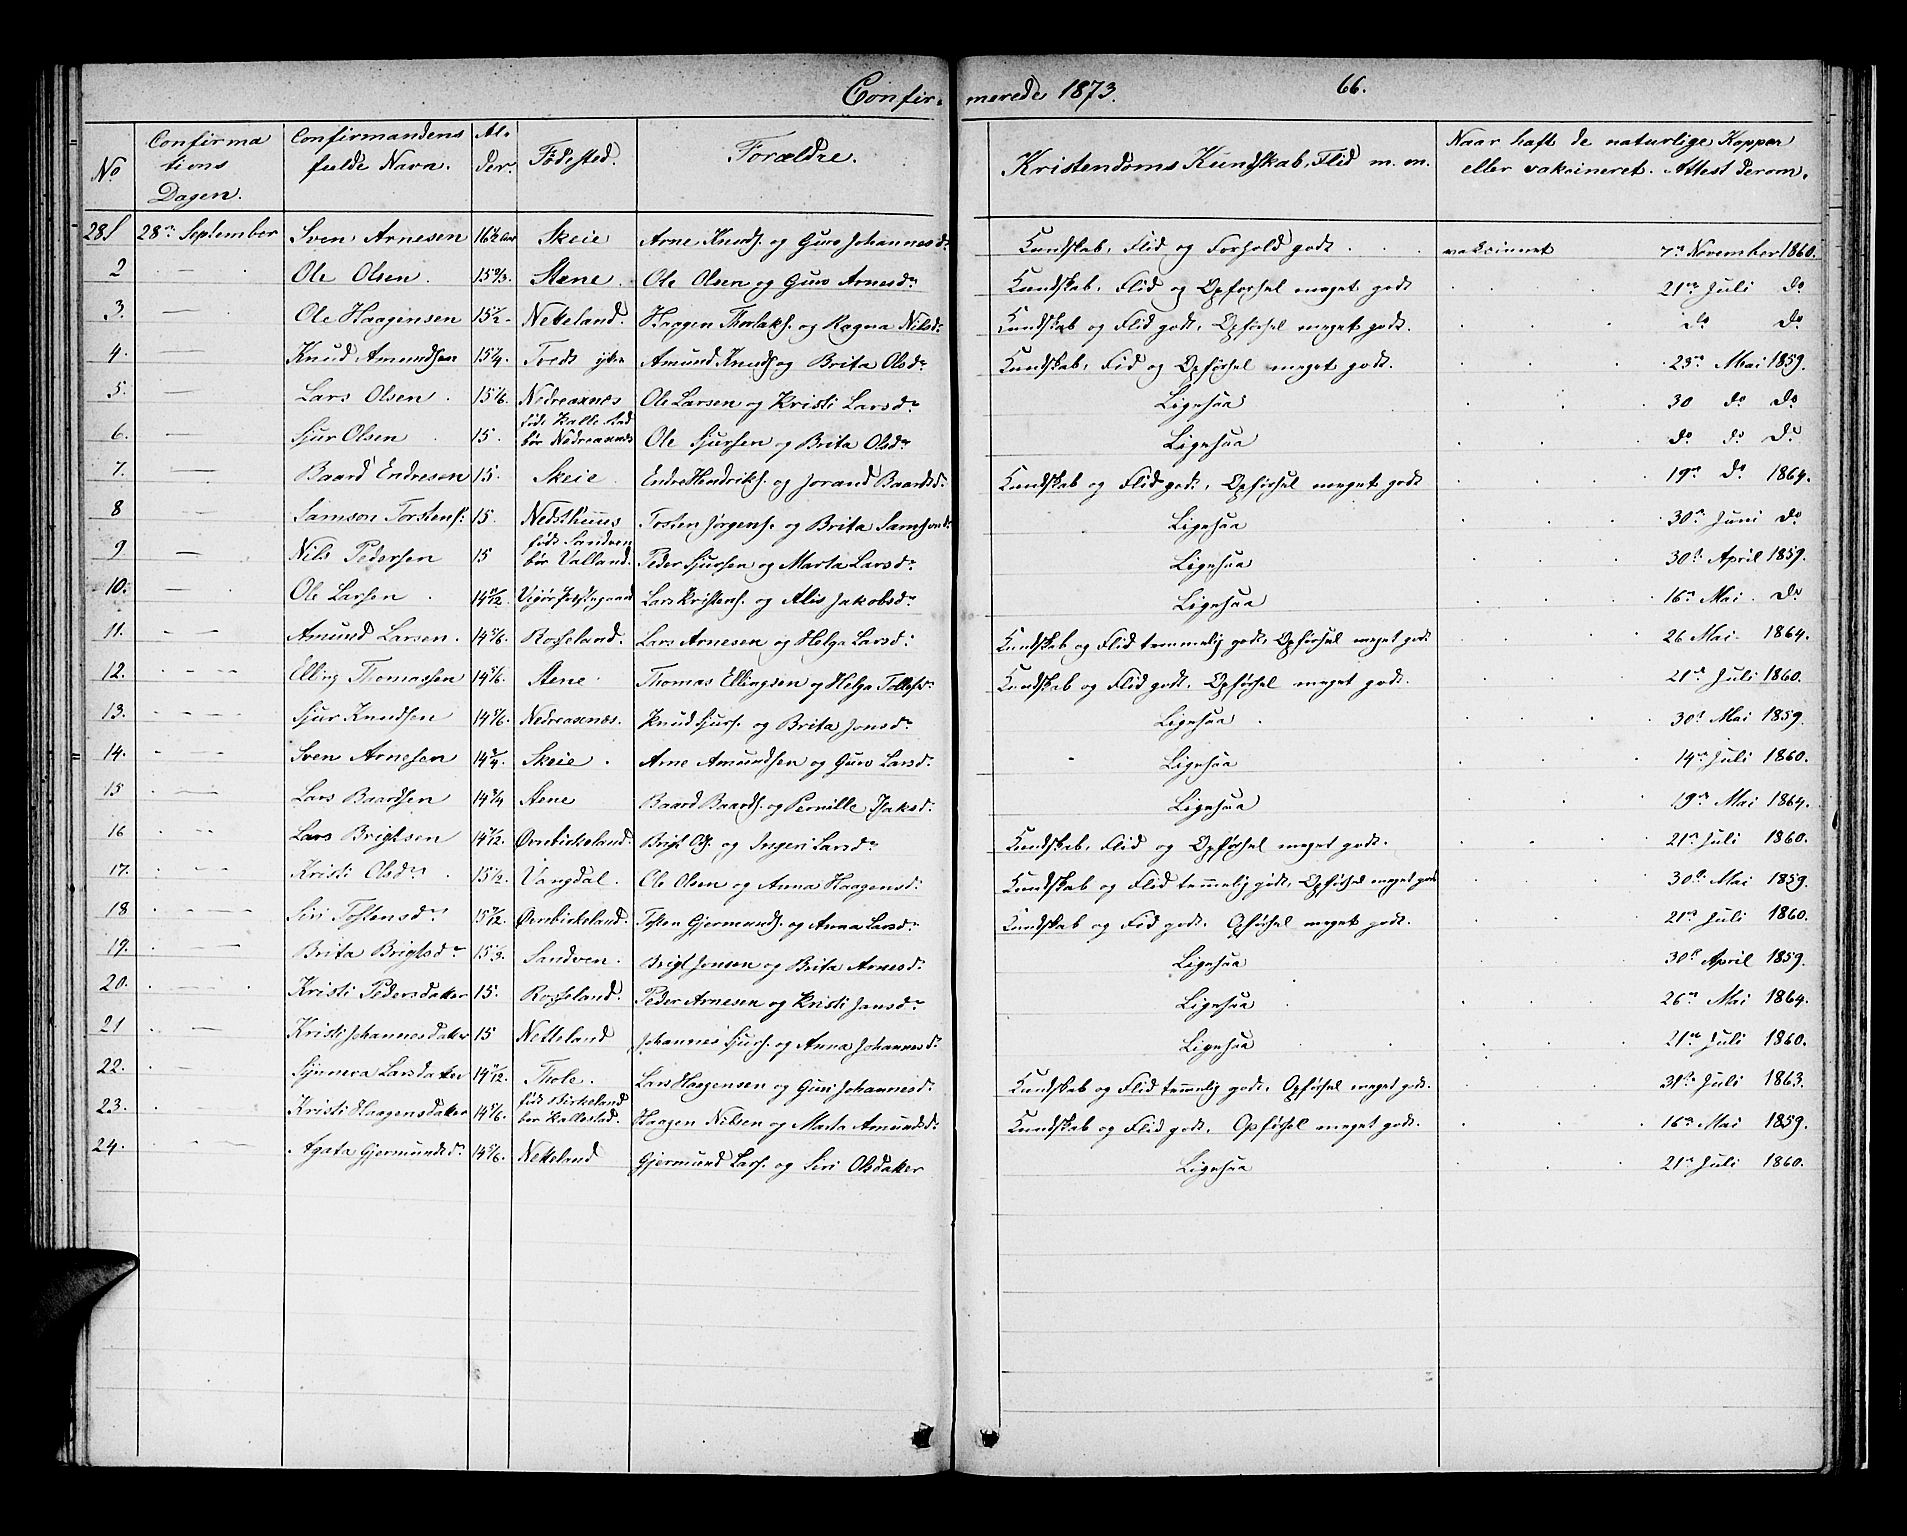 Confirmerede 1873. 66.
No Confirmations Dagen. Confirmandens fulde Navn. Alder. Fødested. Forældre. Kristendoms Kundskab, Flid m. m. Naar haft de naturlige Kopper eller vakcineret. Attest derom.
28 September Sven Arnesen 16½ Aar Skeie Arne Knuds. og Guro Johannesd. Kundskab, Flid og Forhold godt vakcinnet 7de November 1860.
2 — Ole Olsen. Ole Olsen og Guro Arnesdr Kundskab, Flid og Opførsel meget godt 21de Juli do
3. — Ole Haagensen 15½ Netteland. Haagen Thorlaks. og Ragna Nilsdr Kundskab og Flid godt, Opførsel meget godt. do do
4. — Knud Amundsen 15¼. Amund Knuds. og Brita Olsdr Kundskab, Flid og Opførsel meget godt. 23de Mai 1859.
5. — Lars Olsen. 15 1/6. Nedreaxnes Ole Larsen og Kristi Larsdr Ligesaa 30 do do
6. — Sjur Olsen 15. født Kallestad bor Nedreaxnes Ole Sjursen og Brita Olsdr Ligesaa do do do
7. — Baard Endresen 15. Skeie. Endre Hendriks. og Jorand Baardsd. Kundskab og Flid godt, Opførsel meget godt 19de do 1864.
8 — Samson Torstens. 15. Nedsthuus Tosten Jørgens. og Brita Samsonsd. Ligesaa 30te Juni do
9 — Nils Pedersen 15 født Sandven bor Valland. Peder Sjursen og Marta Larsdr Ligesaa 30te April 1859.
10. — Ole Larsen. Lars Kristens. og Alis Jakobsdr Ligesaa 16de Mai. do
11. — Amund Larsen. 14 5/6. Rosseland. Lars Arnesen og Helga Larsd. Kundskab og Flid temmelig godt, Opførsel meget godt 26 Mai 1864.
12. — Elling Thomassen 14 5/6. Aene Thomas Ellingsen og Helga Tollefsdr Kundskab og Flid godt. Opførsel meget godt. 21de Juli 1860.
13. — Sjur Knudsen 14 5/6. Nedreaxnæs. Knud Sjurs. og Brita Jonsdr Ligesaa. 30te Mai 1859.
14. — Sven Arnesen 14¾. Skeie. Arne Amundsen og Guro Larsd. Ligesaa 14de Juli 1860.
15 — Lars Baardsen 14¾ Aene Baard Baards. og Pernille Isaksd. Ligesaa 19de Mai 1864.
16 — Lars Brigtsen Øvrebirkeland. Brigt Ols. og Ingeri Larsdr Kundskab, Flid og Opførsel meget godt. 21de Juli 1860.
17. — Kristi Olsdr. 15½. Vangdal. Ole Olsen og Anna Haagensd. Kundskab og Flid temmelig godt, Opførsel meget godt 30te Mai 1859.
18 — Siri Tostensdr Øvrebirkeland. Tosten Gjermunds. og Anna Larsdr Kundskab og Flid godt. Opførsel meget godt. 21de Juli 1860.
19. — Brita Brigtsdr 15⅓. Sandven. Brigt Jonsen og Brita Arnesdr Ligesaa 30te April 1859.
20. — Kristi Pedersdatter 15. Rosseland. Peder Arnesen og Kristi Jansdr Ligesaa 26de Mai 1864.
21 — Kristi Johannesdatter 15 Netteland Johannes Sjurs. og Anna Johannesdr Ligesaa 21de Juli 1860.
22. — Synneva Larsdatter Thole. Lars Haagensen og Guri Johannesdr Kundskab og Flid temmelig godt, Opførsel meget godt. 31te Juli 1863.
23. Kristi Haagensdatter 14 5/6. født Birkeland bor Kallestad. Haagen Nilsen og Marta Amundsdr Kundskab og Flid godt, Opførsel meget godt. 16de Mai 1859.
24. — Agata Gjermundsdr 14 5/6. Netteland Gjermund Lars. og Siri Olsdatter Ligesaa 21de Juli 1860.